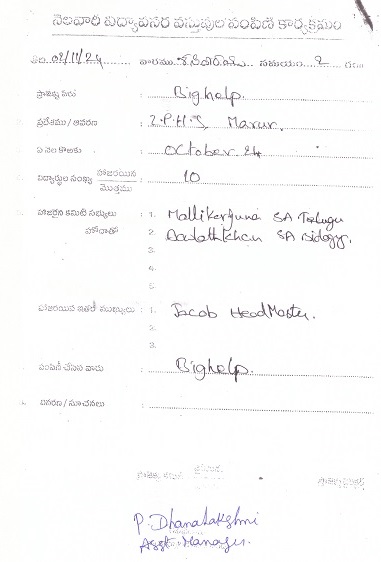 నెలవారి విద్యావసర వస్తువుల పంపిణి కార్యక్రమం
తేది 02/11/24 వారము. శనివారము సమయం 2 గం॥
ప్రాజెక్టు పేరు : Bighelp.
ప్రదేశము / ఆవరణ : Z.P.H.S Marur.
ఏ నెల కొఱకు : October 24
విద్యార్థుల సంఖ్య హాజరయిన / మొత్తము : 10
హాజరైన కమిటి సభ్యులు : 1. Mallikarjuna SA Telugu
హోదాతో 2. Dadathkhan SA Biology.
3.
4.
5.
హాజరయిన ఇతర ముఖ్యులు : 1. Jacob HeadMaster.
2.
3.
పంపిణీ చేసిన వారు : Bighelp.
వివరణ / సూచనలు :
P. Dhanalakshmi
Asst. Manager.